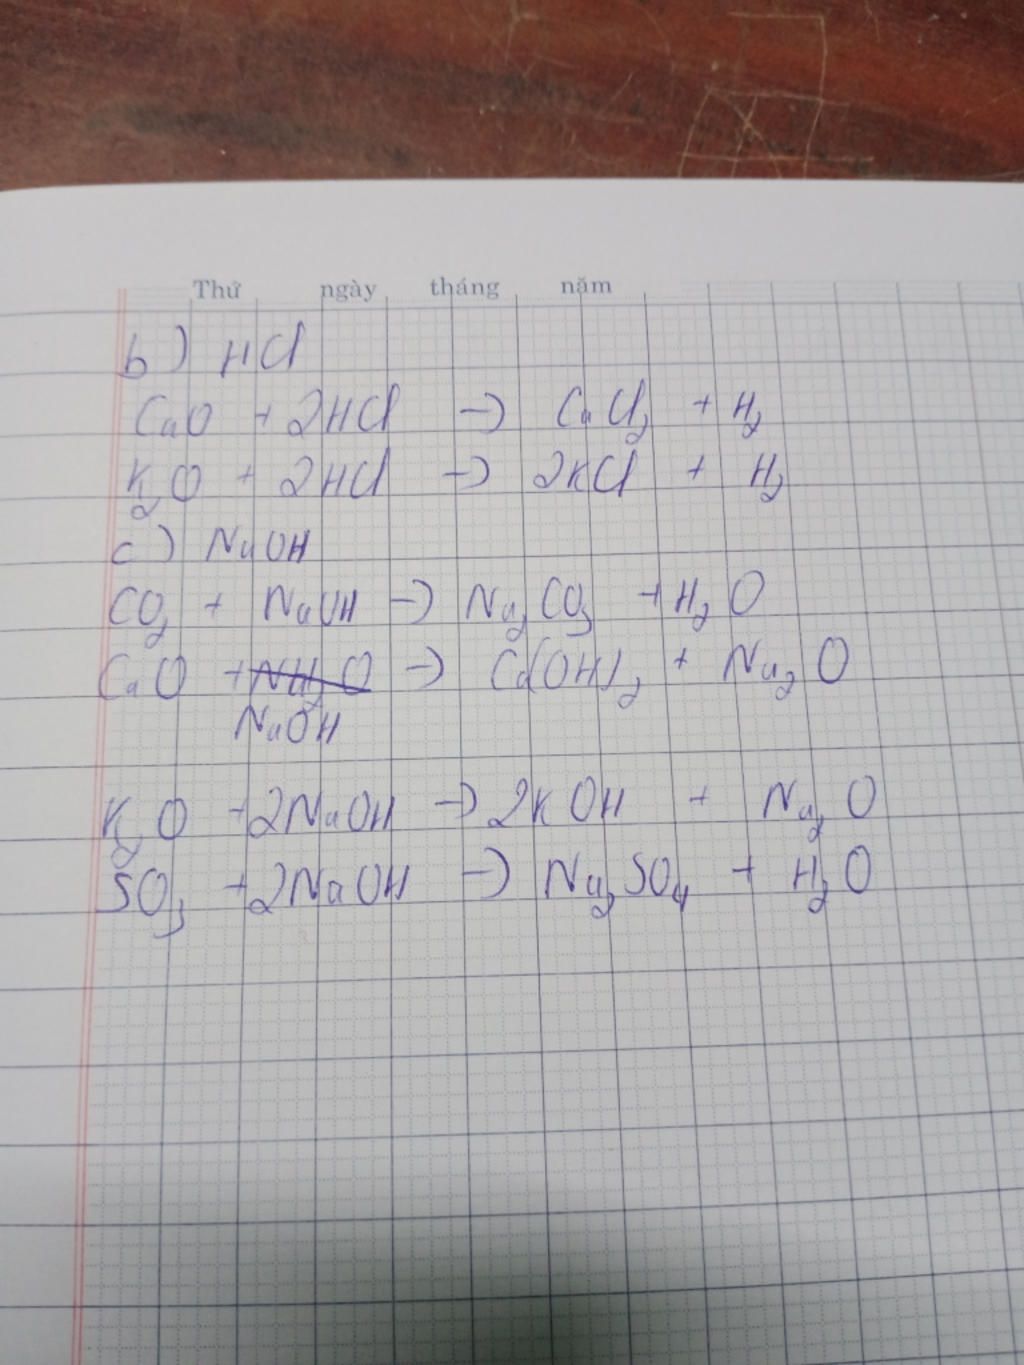 Thứ ngày tháng năm
b) HCl
CaO + 2HCl → CaCl₂ + H₂
K₂O + 2HCl → 2KCl + H₂
c) NaOH
CO₂ + NaOH → Na₂CO₃ + H₂O
CaO + → Ca(OH)₂ + Na₂O
NaOH
K₂O + 2NaOH → 2KOH + Na₂O
SO₃ + 2NaOH → Na₂SO₄ + H₂O